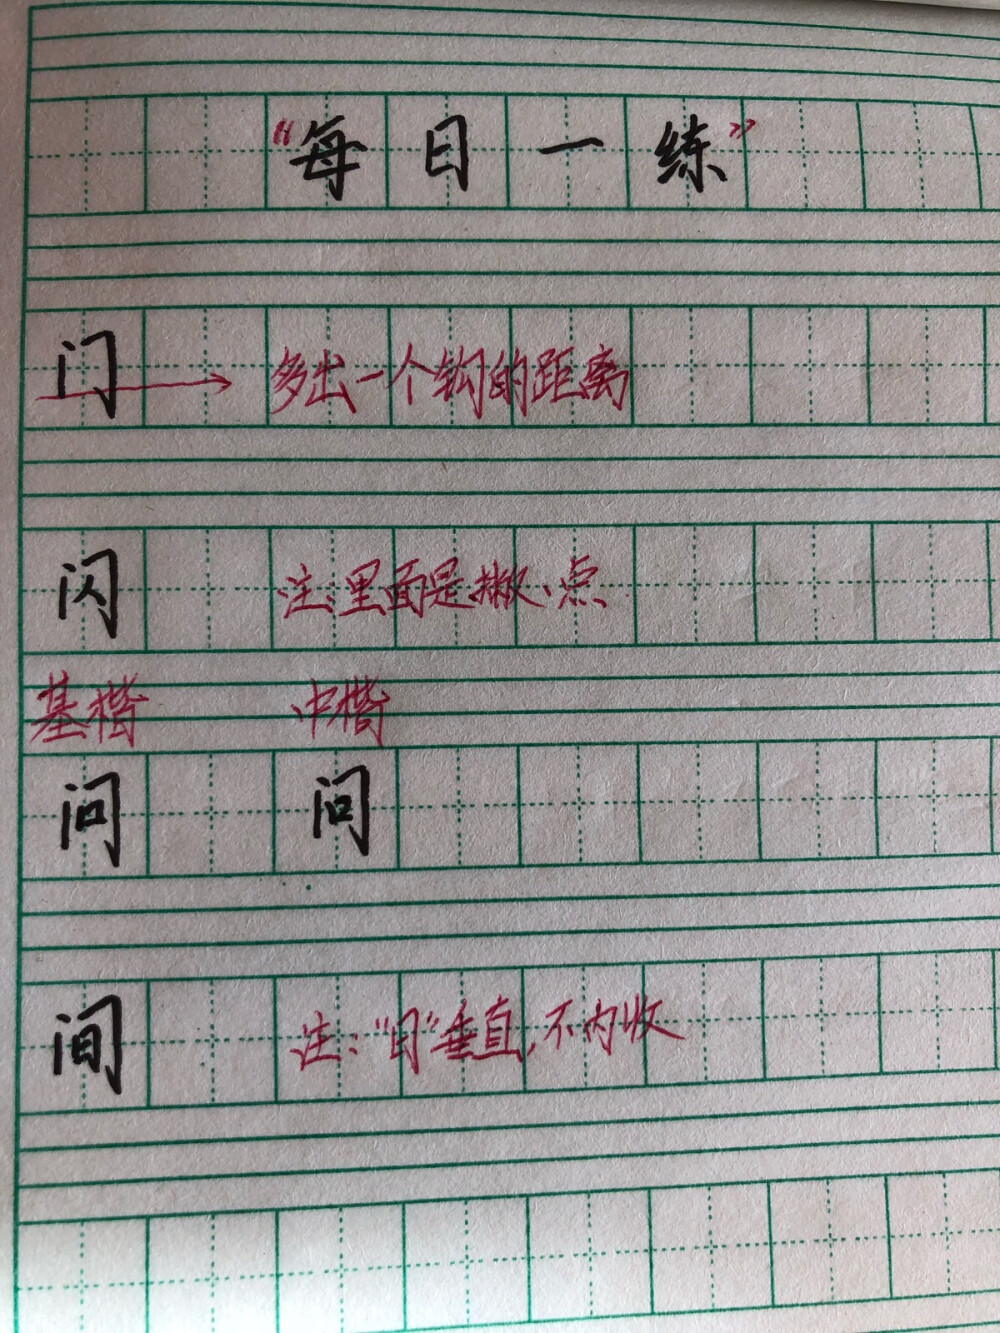 “每日一练”
门 多出一个钩的距离
闪 注:里面是撇、点
基楷 中楷
问 问
间 注:“日”垂直,不内收